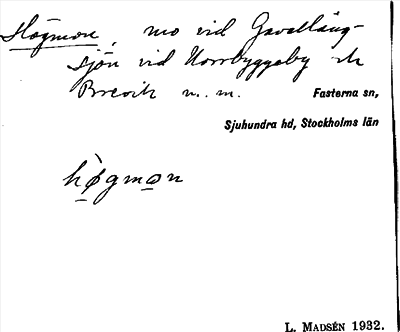 Högmon, mo vid Gavellång-
sjön vid Norrbyggeby och
Brevik m. m.
Fasterna sn,
Sjuhundra hd, Stockholms län
hø̀gmɷn
L. MADSÉN 1932.